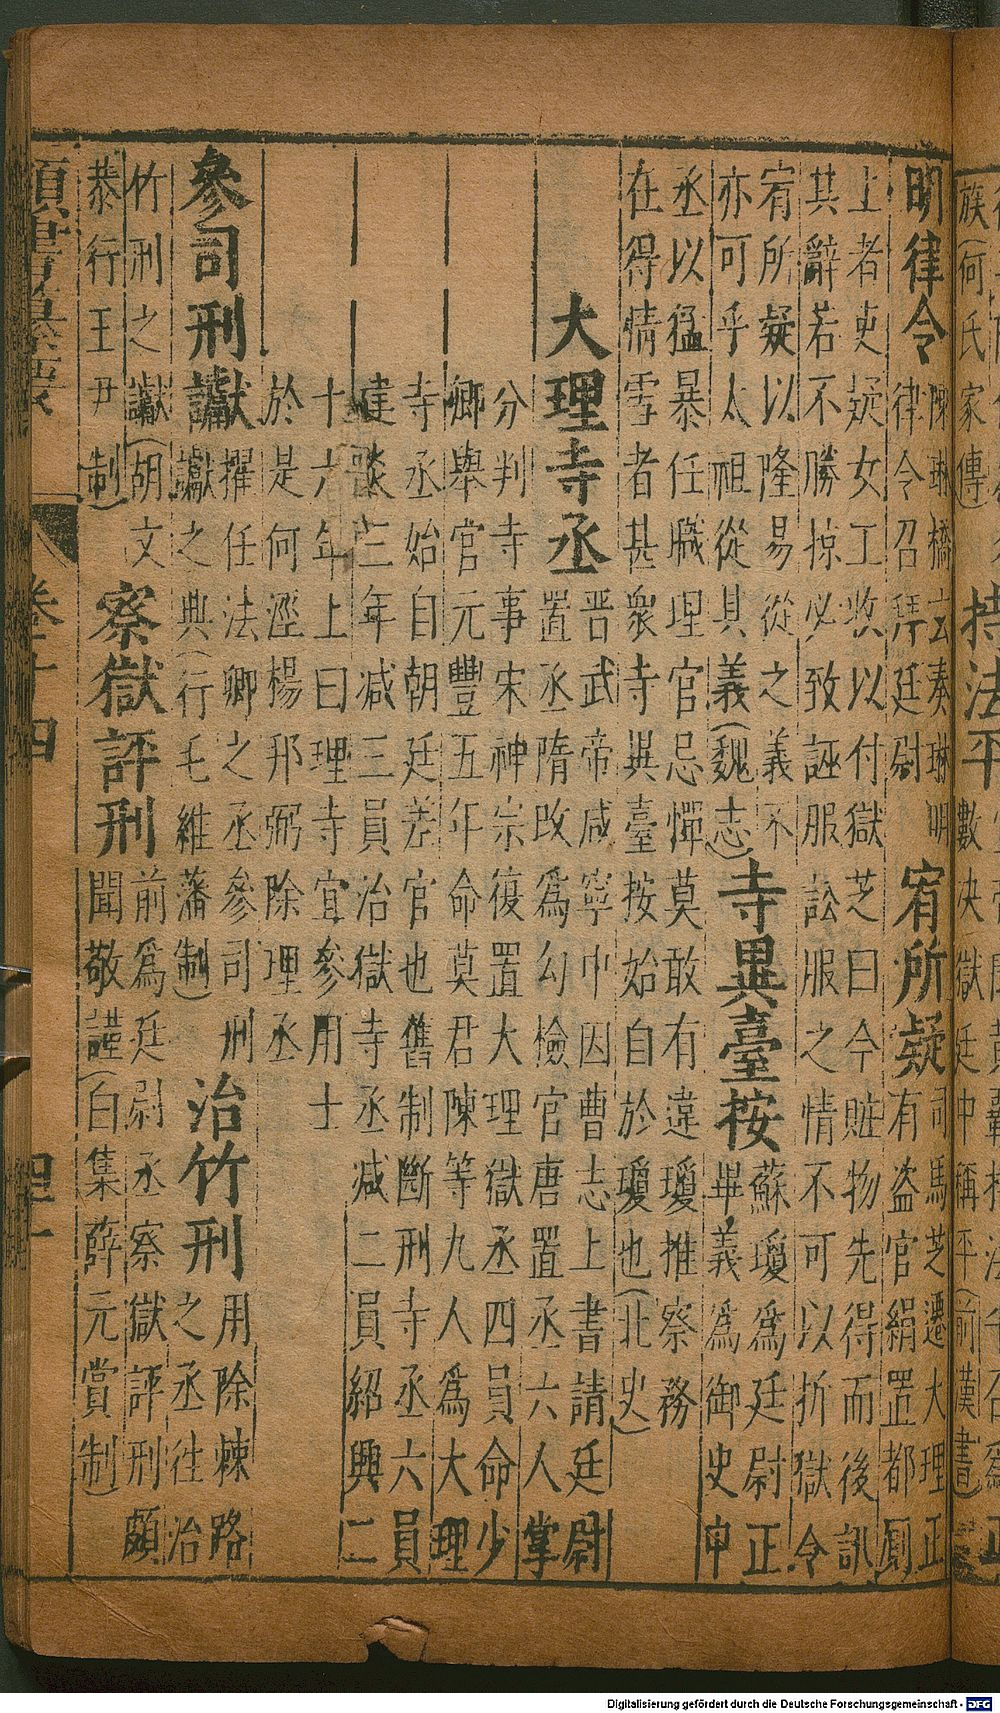 族(何氏家傳)
持法平
數決獄廷中稱平(前漢書)
明律令
陳琳橋玄奏琳明
律令召拜廷尉
宥所疑
司馬芝遷大理正
有盗官絹置都厠
上者吏疑女工收以付獄芝曰今賍物先得而後訊
其辭若不勝掠必致誣服訟服之情不可以折獄令
宥所疑以隆易從之義不
亦可乎太祖從其義(魏志)
寺異臺按
蘇瓊爲廷尉正
畢義爲御史中
丞以猛暴任職理官忌憚莫敢有違瓊推察務
在得情雪者甚衆寺異臺按始自於瓊也(北史)
大理寺丞
晋武帝咸寧中因曹志上書請廷尉
置丞隋改爲勾檢官唐置丞六人掌
分判寺事宋神宗復置大理獄丞四員命少
卿舉官元豐五年命莫君陳等九人爲大理
寺丞始自朝廷差官也舊制斷刑寺丞六員
建炎三年减三員治獄寺丞减二員紹興二
十六年上曰理寺宜參用士
於是何涇楊邦弼除理丞
參司刑讞
獻擢任法卿之丞參司刑
讞之典(行毛維藩制)
治竹刑
用除棘路
之丞往治
竹刑之讞(胡文
恭行王尹制)
察獄評刑
前爲廷尉丞察獄評刑頗
聞敬謹(白集薛元賞制)
類書纂要
卷十四
Digitalisierung gefördert durch die Deutsche Forschungsgemeinschaft - DFG